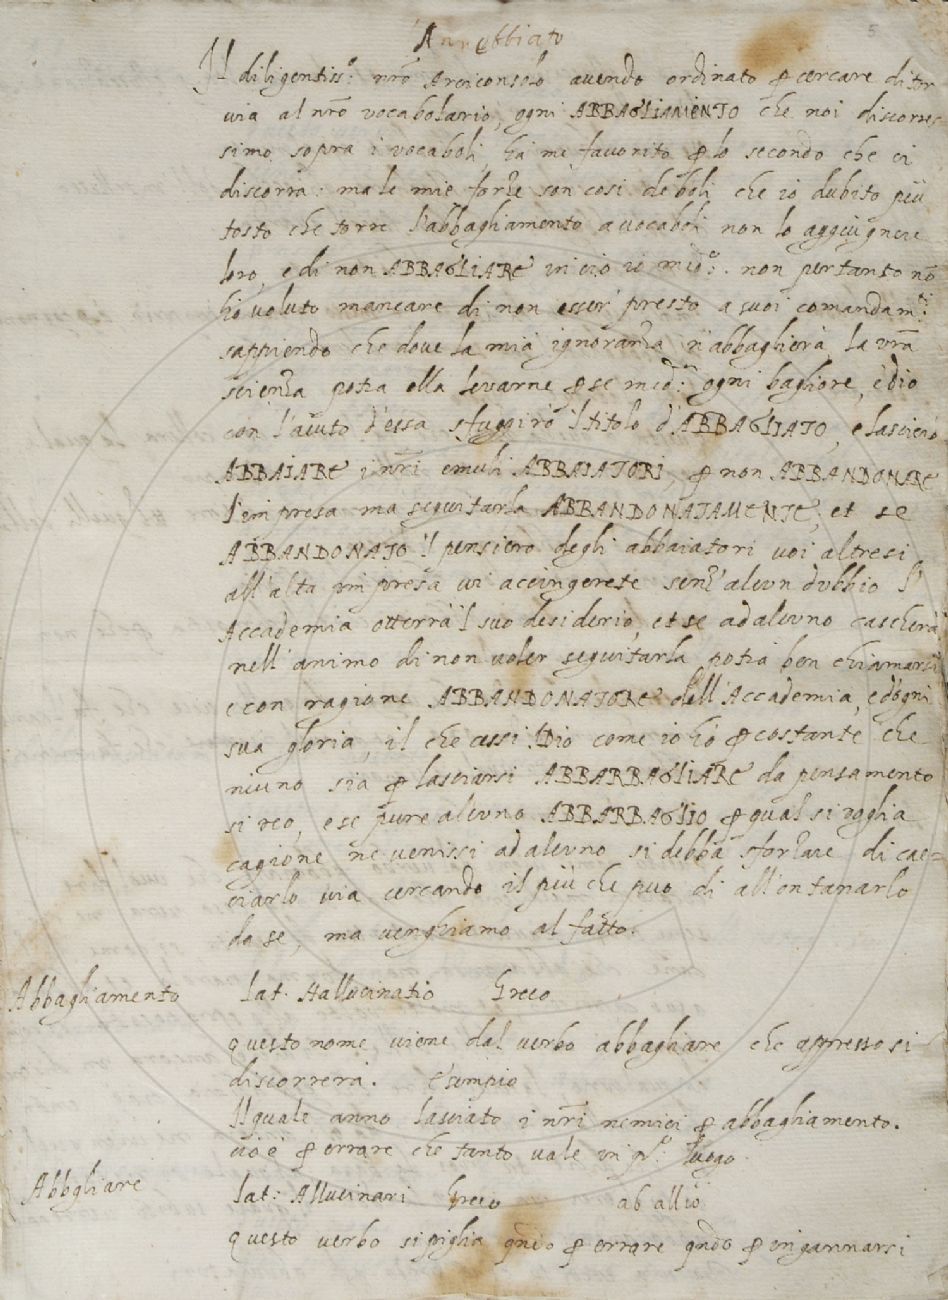 5
Arrabbiato
Il diligentiss.º nrõ Arciconsolo avendo ordinato p cercare di tor
via al nrõ vocabolario, ogni ABBAGLIAMENTO che noi discorres=
simo sopra i vocaboli, há me favorito p lo secondo che ci
discorra: ma le mie forze son cosi deboli che io dubito piu
tosto che torre l'abbagliamento a vocaboli non lo aggiugnere
loro, e di non ABBAGLIARE in ció io med.º. non pertanto nõ
hó voluto mancare di non esser presto a suoi comandam.ti
sappiendo che dove la mia ignoranza n'abbaglierà, la vrã
scienza potrà ella levarne p se med.ª ogni bagliore, ed io
con l'aiuto d'essa sfuggiró 'l titolo d'ABBAGLIATO, e lascieró
ABBAIARE i nrĩ emuli ABBAIATORI, p non ABBANDONARE
l'impresa ma seguitarla ABBANDONATAMENTE, et se
ABBANDONATO 'l pensiero degli abbaiatori voi altresi
all'alta impresa vi accingerete senz'alcun dubbio l'
Accademia otterrà 'l suo desiderio, et se ad alcuno cascherà
nell'animo di non voler seguitarla potrà ben chiamarsi
e con ragione ABBANDONATORE dell'Accademia, e d'ogni
sua gloria, il che cessi Dio come io hó p costante che
niuno sia p lasciarsi ABBARBAGLIARE da pensamento
si reo, e se pure alcuno ABBARBAGLIO p qual si voglia
cagione ne venissi ad alcuno si debba sforzare di cac=
ciarlo via cercando il piu che puo di allontanarlo
da se, ma venghiamo al fatto.
Abbagliamento lat. Hallucinatio Greco
questo nome viene dal verbo abbagliare che appresso si
discorrerà. esempio
Il quale anno lasciato i nrĩ nemici p abbagliamento.
cio è p errore che tanto vale in pº. luogo.
Abbgliare lat: Allucinari Greco ab allio
questo verbo si piglia qñdo p errare qñdo p ingannarsi